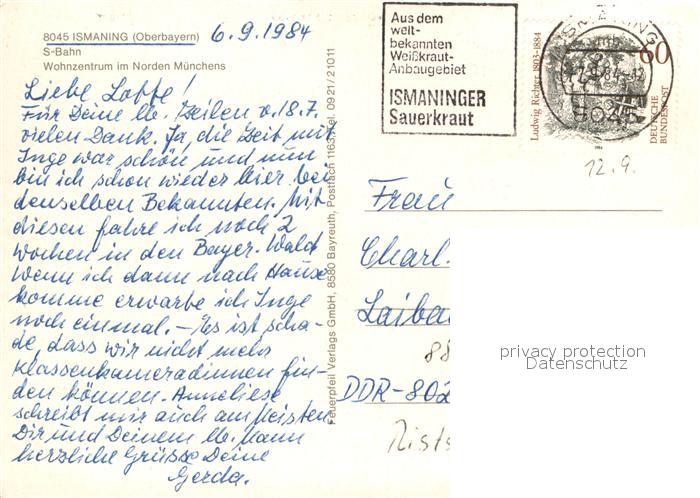 8045 ISMANING (Oberbayern) 6.9.1984
S-Bahn
Wohnzentrum im Norden Münchens
Liebe Lotte!
Für Deine lb. Zeilen v. 18.7.
vielen Dank. Ja, die Zeit mit
Inge war schön und nun
bin ich schon wieder hier bei
denselben Bekannten. Mit
diesen fahre ich noch 2
Wochen in den Bayer. Wald
Wenn ich dann nach Hause
komme erwarte ich Inge
noch einmal. – Es ist scha-
de, dass wir nicht mehr
Klassenkameradinnen fin-
den können. Anneliese
schreibt mir auch am meisten
Dir und Deinem lb. Mann
herzliche Grüsse Deine
Gerda.
Feuerpfeil Verlags GmbH, 8580 Bayreuth, Postfach 1163, Tel. 0921/21011
Aus dem
welt-
bekannten
Weißkraut-
Anbaugebiet
ISMANINGER
Sauerkraut
Ludwig Richter 1803-1884
60
DEUTSCHE
BUNDESPOST
ISMANING
8045
12.9.
Frau
Charl.
Laiba
88
DDR-802
privacy protection
Datenschutz